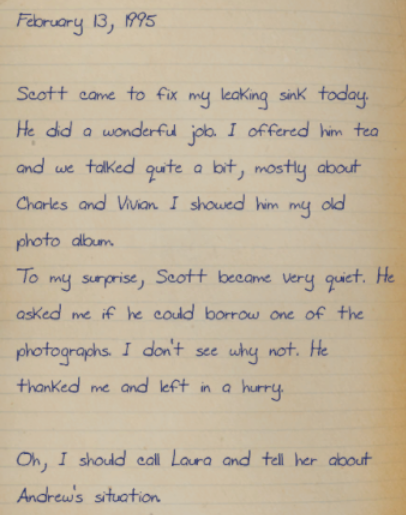 February 13, 1995
Scott came to fix my leaking sink today.
He did a wonderful job. I offered him tea
and we talked quite a bit, mostly about
Charles and Vivian. I showed him my old
photo album.
To my surprise, Scott became very quiet. He
asked me if he could borrow one of the
photographs. I don't see why not. He
thanked me and left in a hurry.
Oh, I should call Laura and tell her about
Andrew's situation.